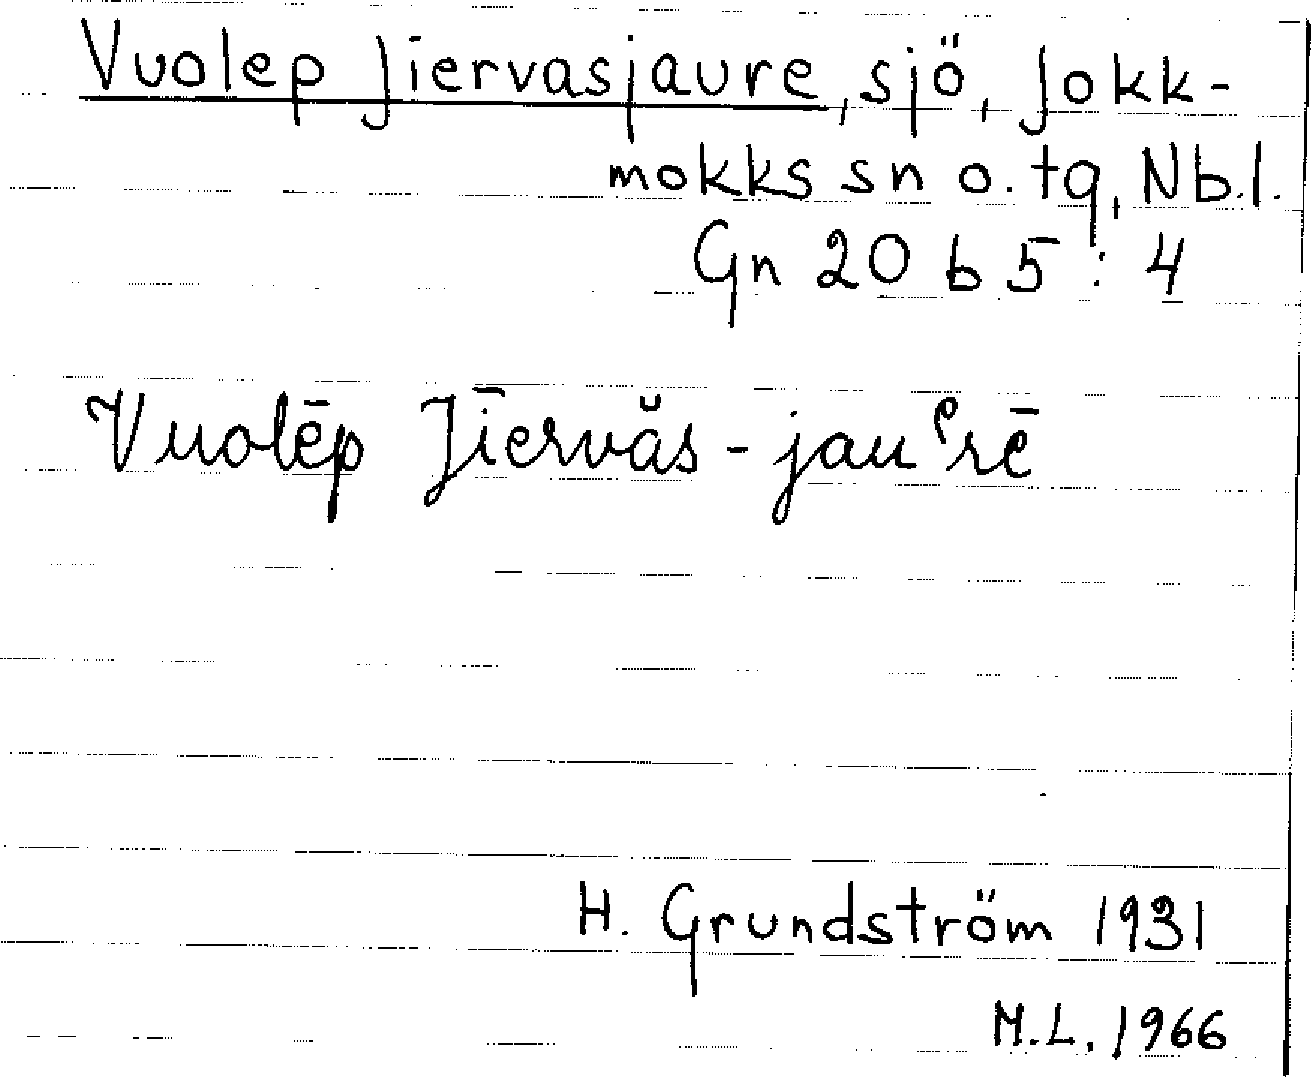 Vuolep Jiervasjaure, sjö, Jokk-
mokks sn o. tg, Nb.l.
Gn 20 b 5 : 4
Vuolēp Jīervăs-jauᵉrē
H. Grundström 1931
M.L. 1966